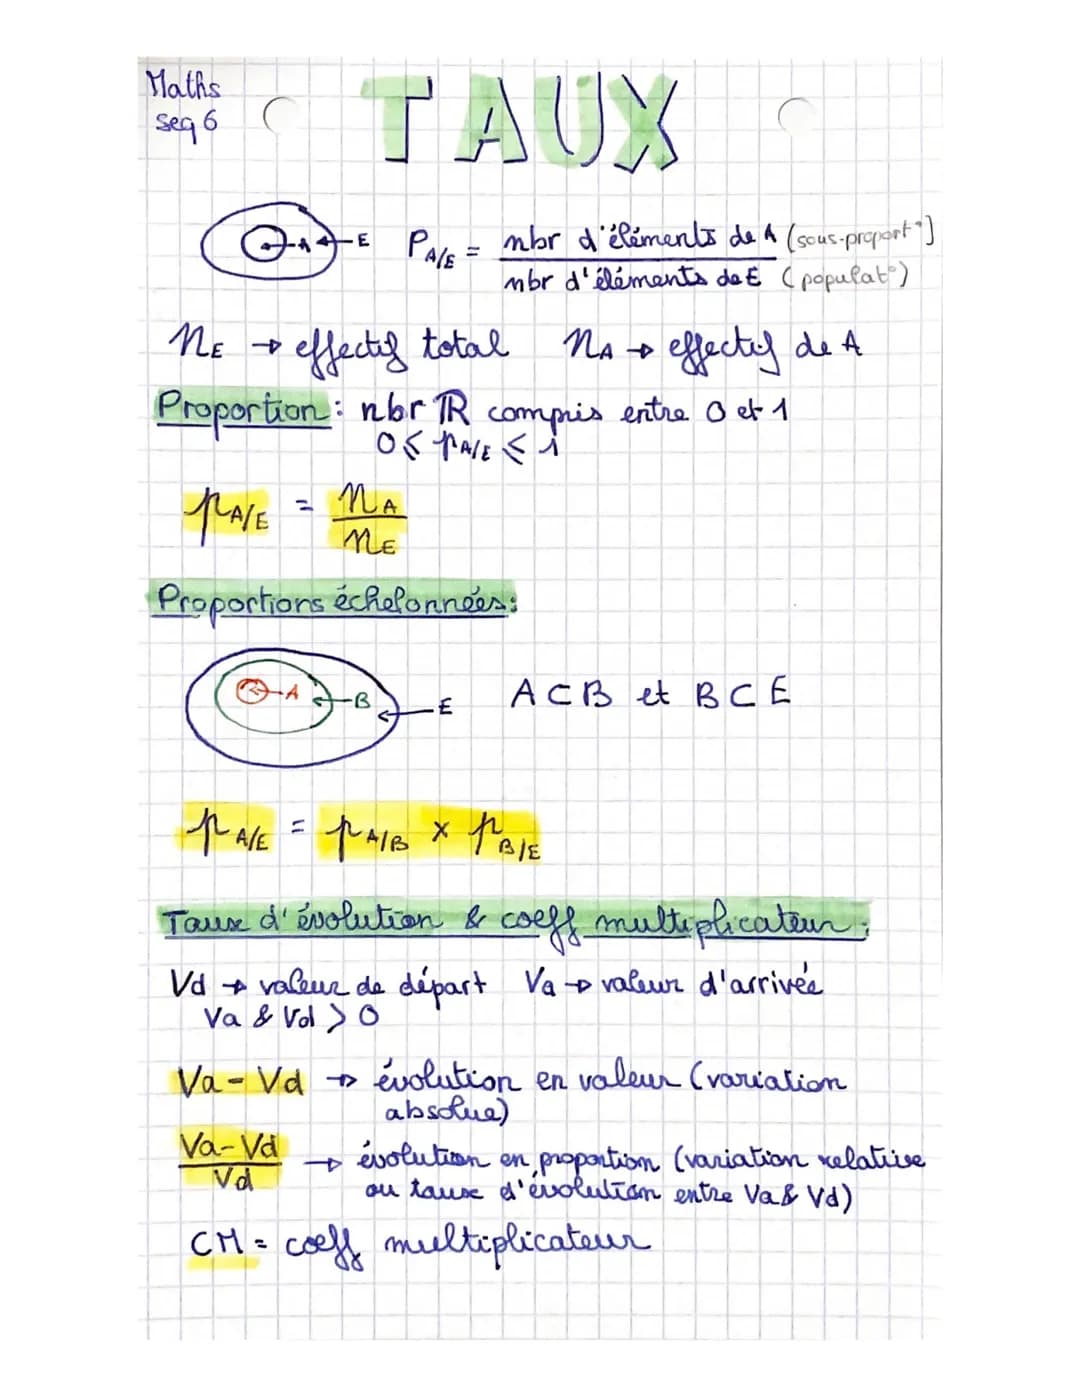 Maths
seq 6
TAUX
A E P A/E = nbr d'éléments de A (sous-proport°)
nbr d'éléments de E (populat°)
nE → effectif total nA → effectif de A
Proportion : nbr ℝ compris entre 0 et 1
0 ≤ pA/E ≤ 1
pA/E = nA
nE
Proportions échelonnées :
A B E A ⊂ B et B ⊂ E
pA/E = pA/B × pB/E
Taux d'évolution & coeff multiplicateur :
Vd → valeur de départ Va → valeur d'arrivée
Va & Vd > 0
Va - Vd → évolution en valeur (variation
absolue)
Va - Vd
Vd → évolution en proportion (variation relative
ou taux d'évolution entre Va & Vd)
CM = coeff multiplicateur